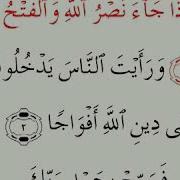 ذَا جَآءَ نَصْرُ ٱللَّهِ وَٱلْفَتْحُ
وَرَأَيْتَ ٱلنَّاسَ يَدْخُلُو
ى دِينِ ٱللَّهِ أَفْوَاجًا ٢